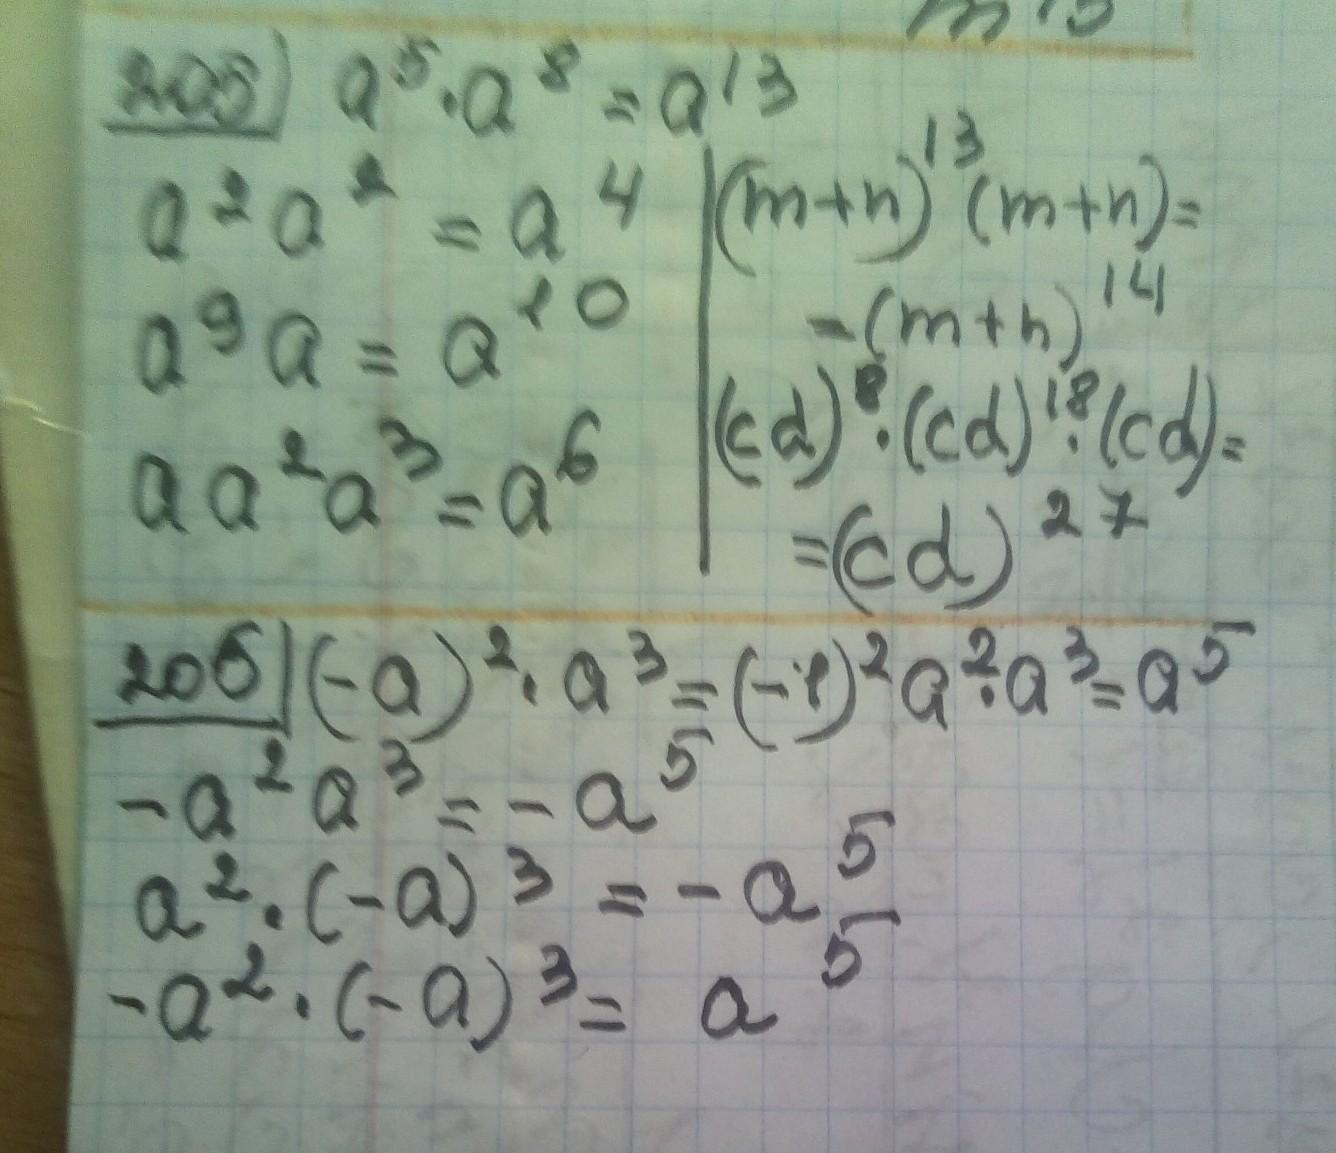 205) a⁵·a⁸ = a¹³
a²a² = a⁴
a⁹a = a¹⁰
aa²a³ = a⁶
(m+n)¹³(m+n)=
=(m+n)¹⁴
(cd)⁸·(cd)¹⁸·(cd)=
=(cd)²⁷
206) (-a)²·a³=(-1)²a²·a³=a⁵
-a²a³=-a⁵
a²·(-a)³=-a⁵
-a²·(-a)³= a⁵